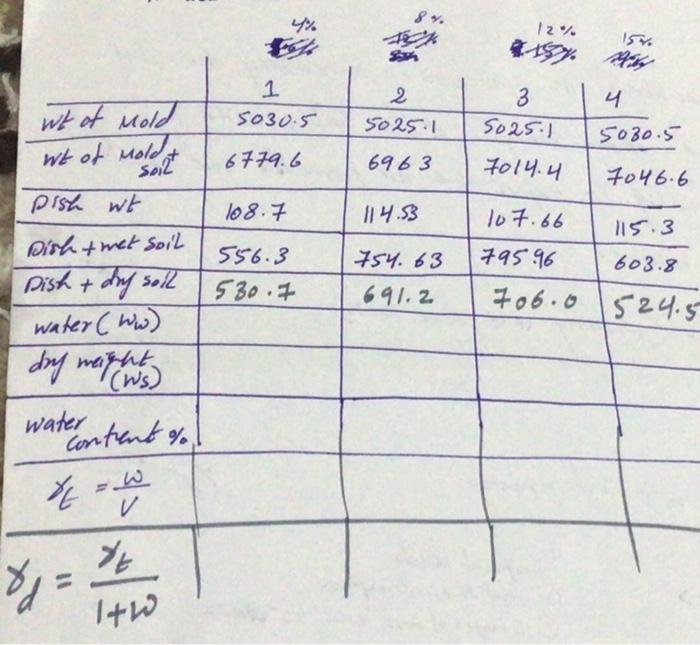 4% 8% 12% 15%
1 2 3 4
wt of Mold 5030.5 5025.1 5025.1 5030.5
wt of Mold + soil 6779.6 6963 7014.4 7046.6
Dish wt 108.7 114.53 107.66 115.3
Dish + wet soil 556.3 754.63 795.96 603.8
Dish + dry soil 530.7 691.2 706.0 524.5
water (Ww)
dry weight (Ws)
water content %
γt = W/V
γd = γt/1+W